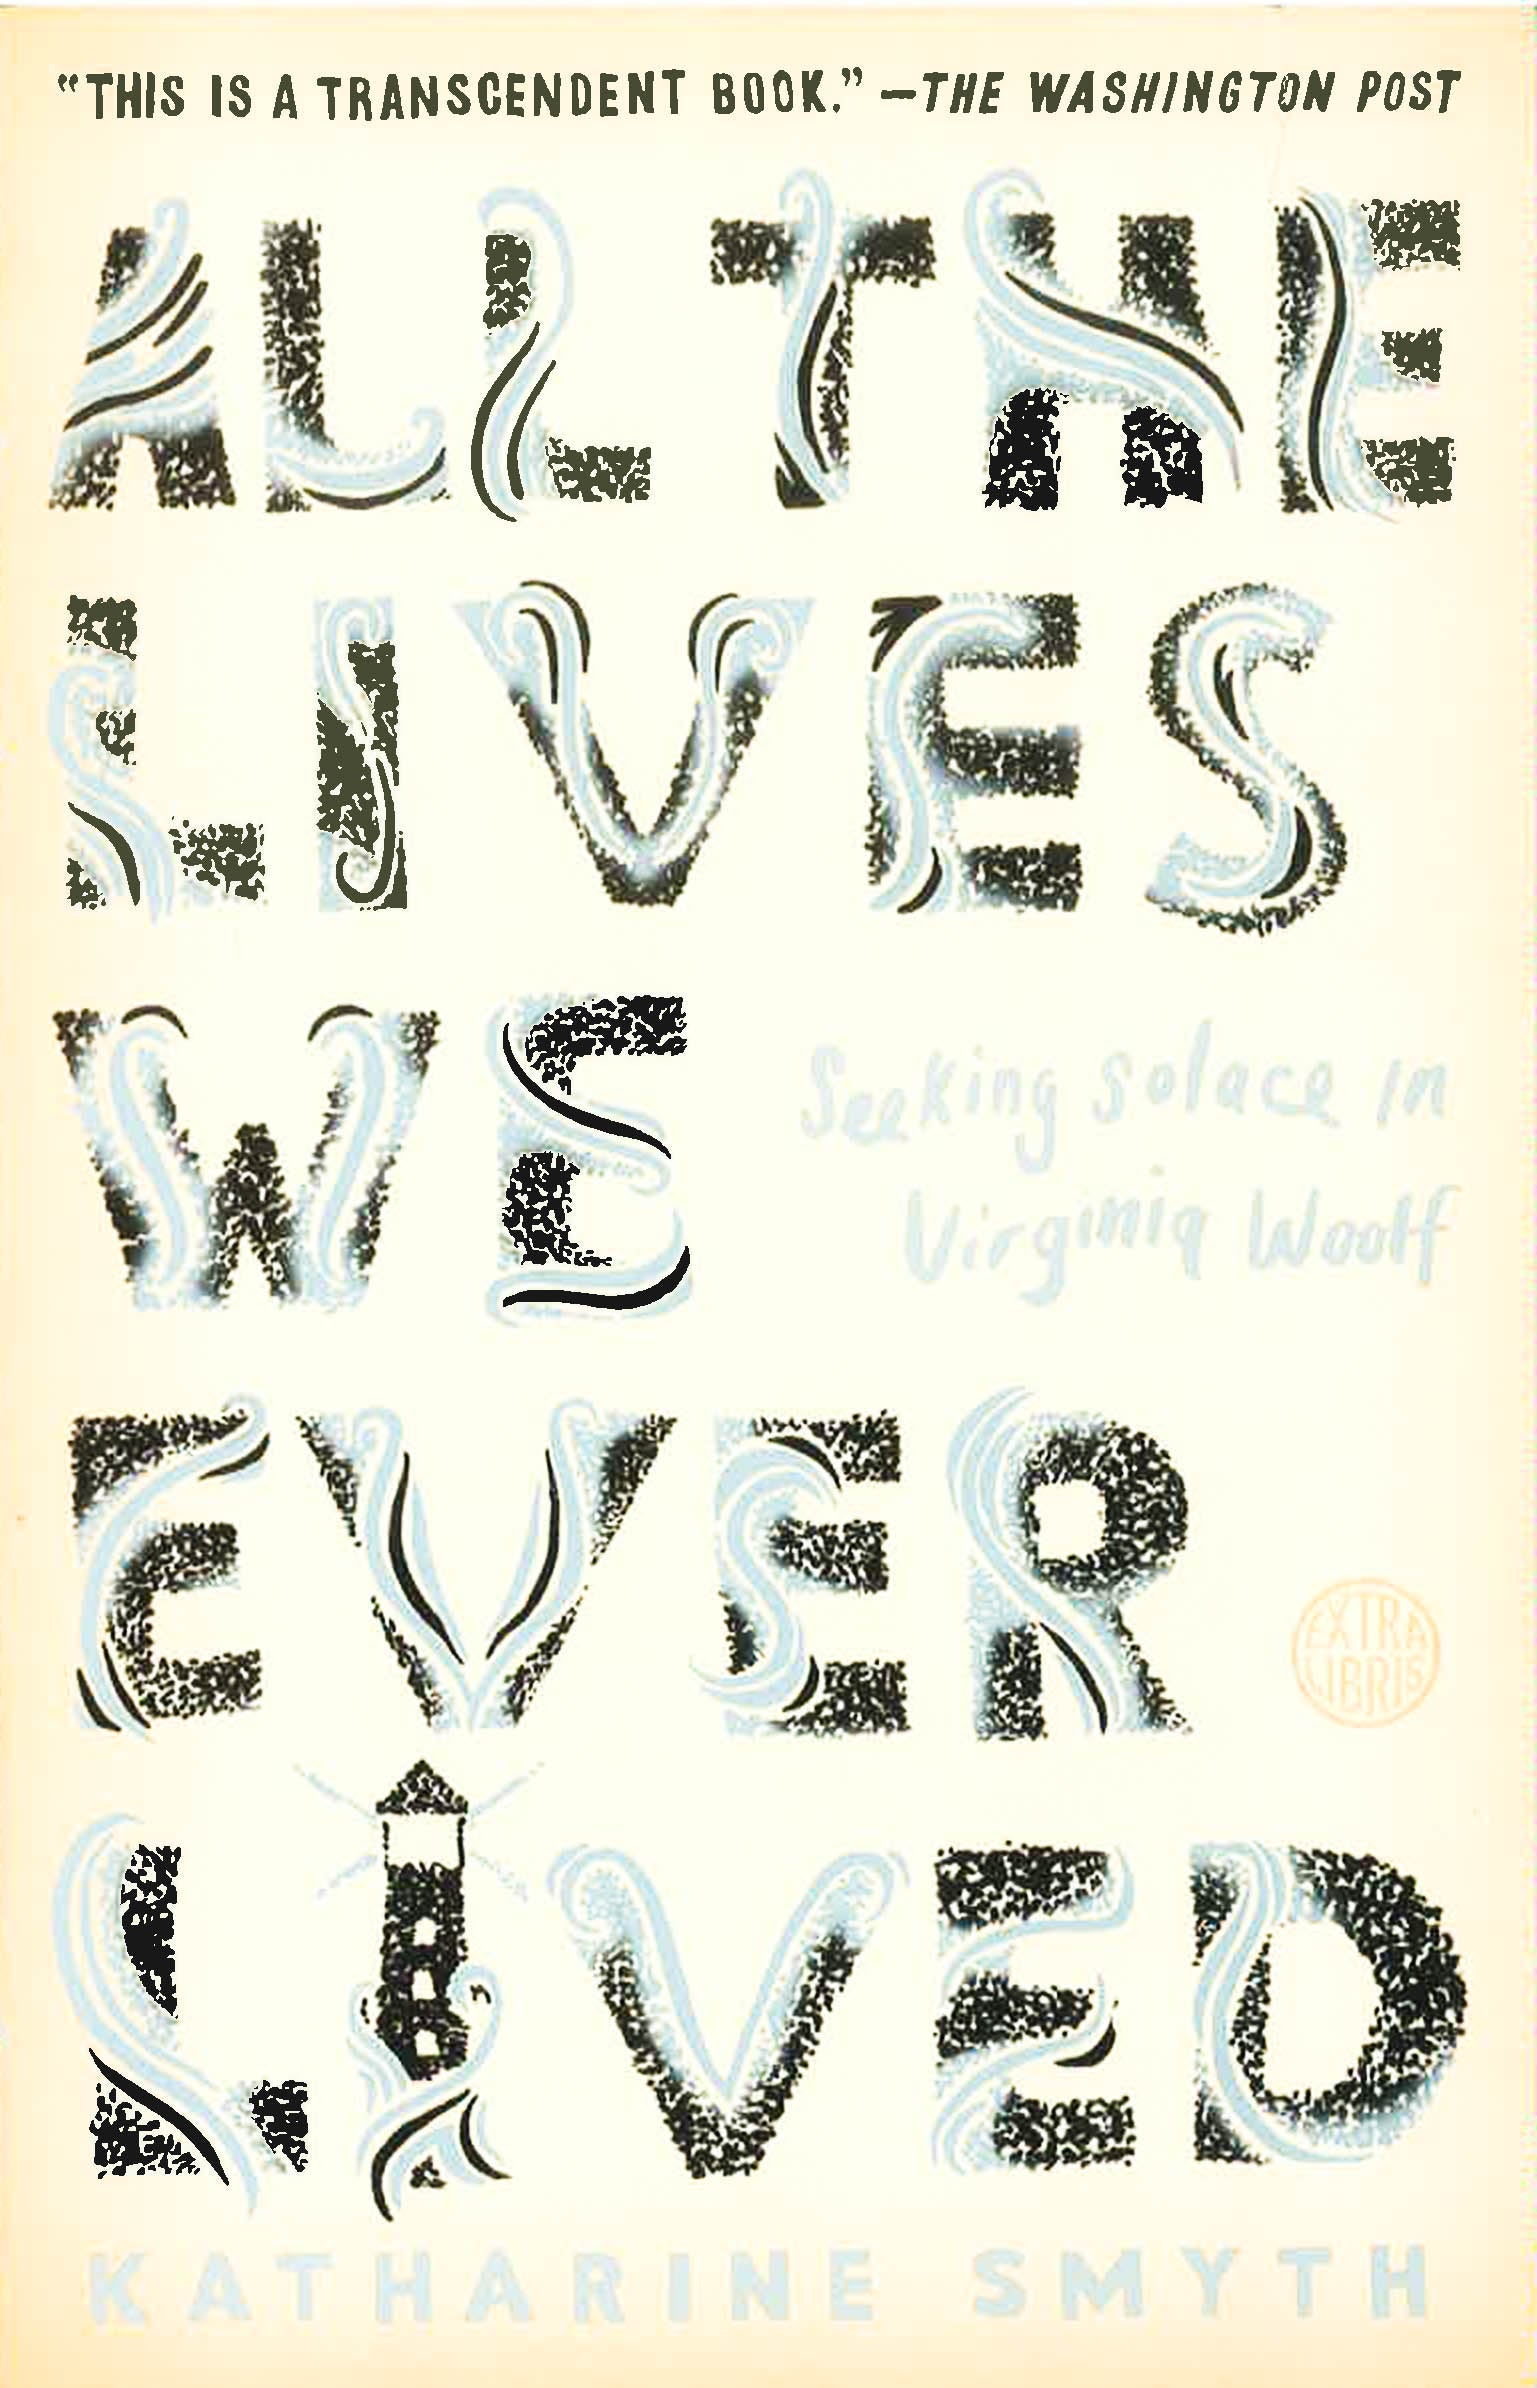 “THIS IS A TRANSCENDENT BOOK.” —THE WASHINGTON POST
ALL THE
LIVES
WE
Seeking Solace in
Virginia Woolf
EVER
EXTRA
LIBRIS
LIVED
KATHARINE SMYTH